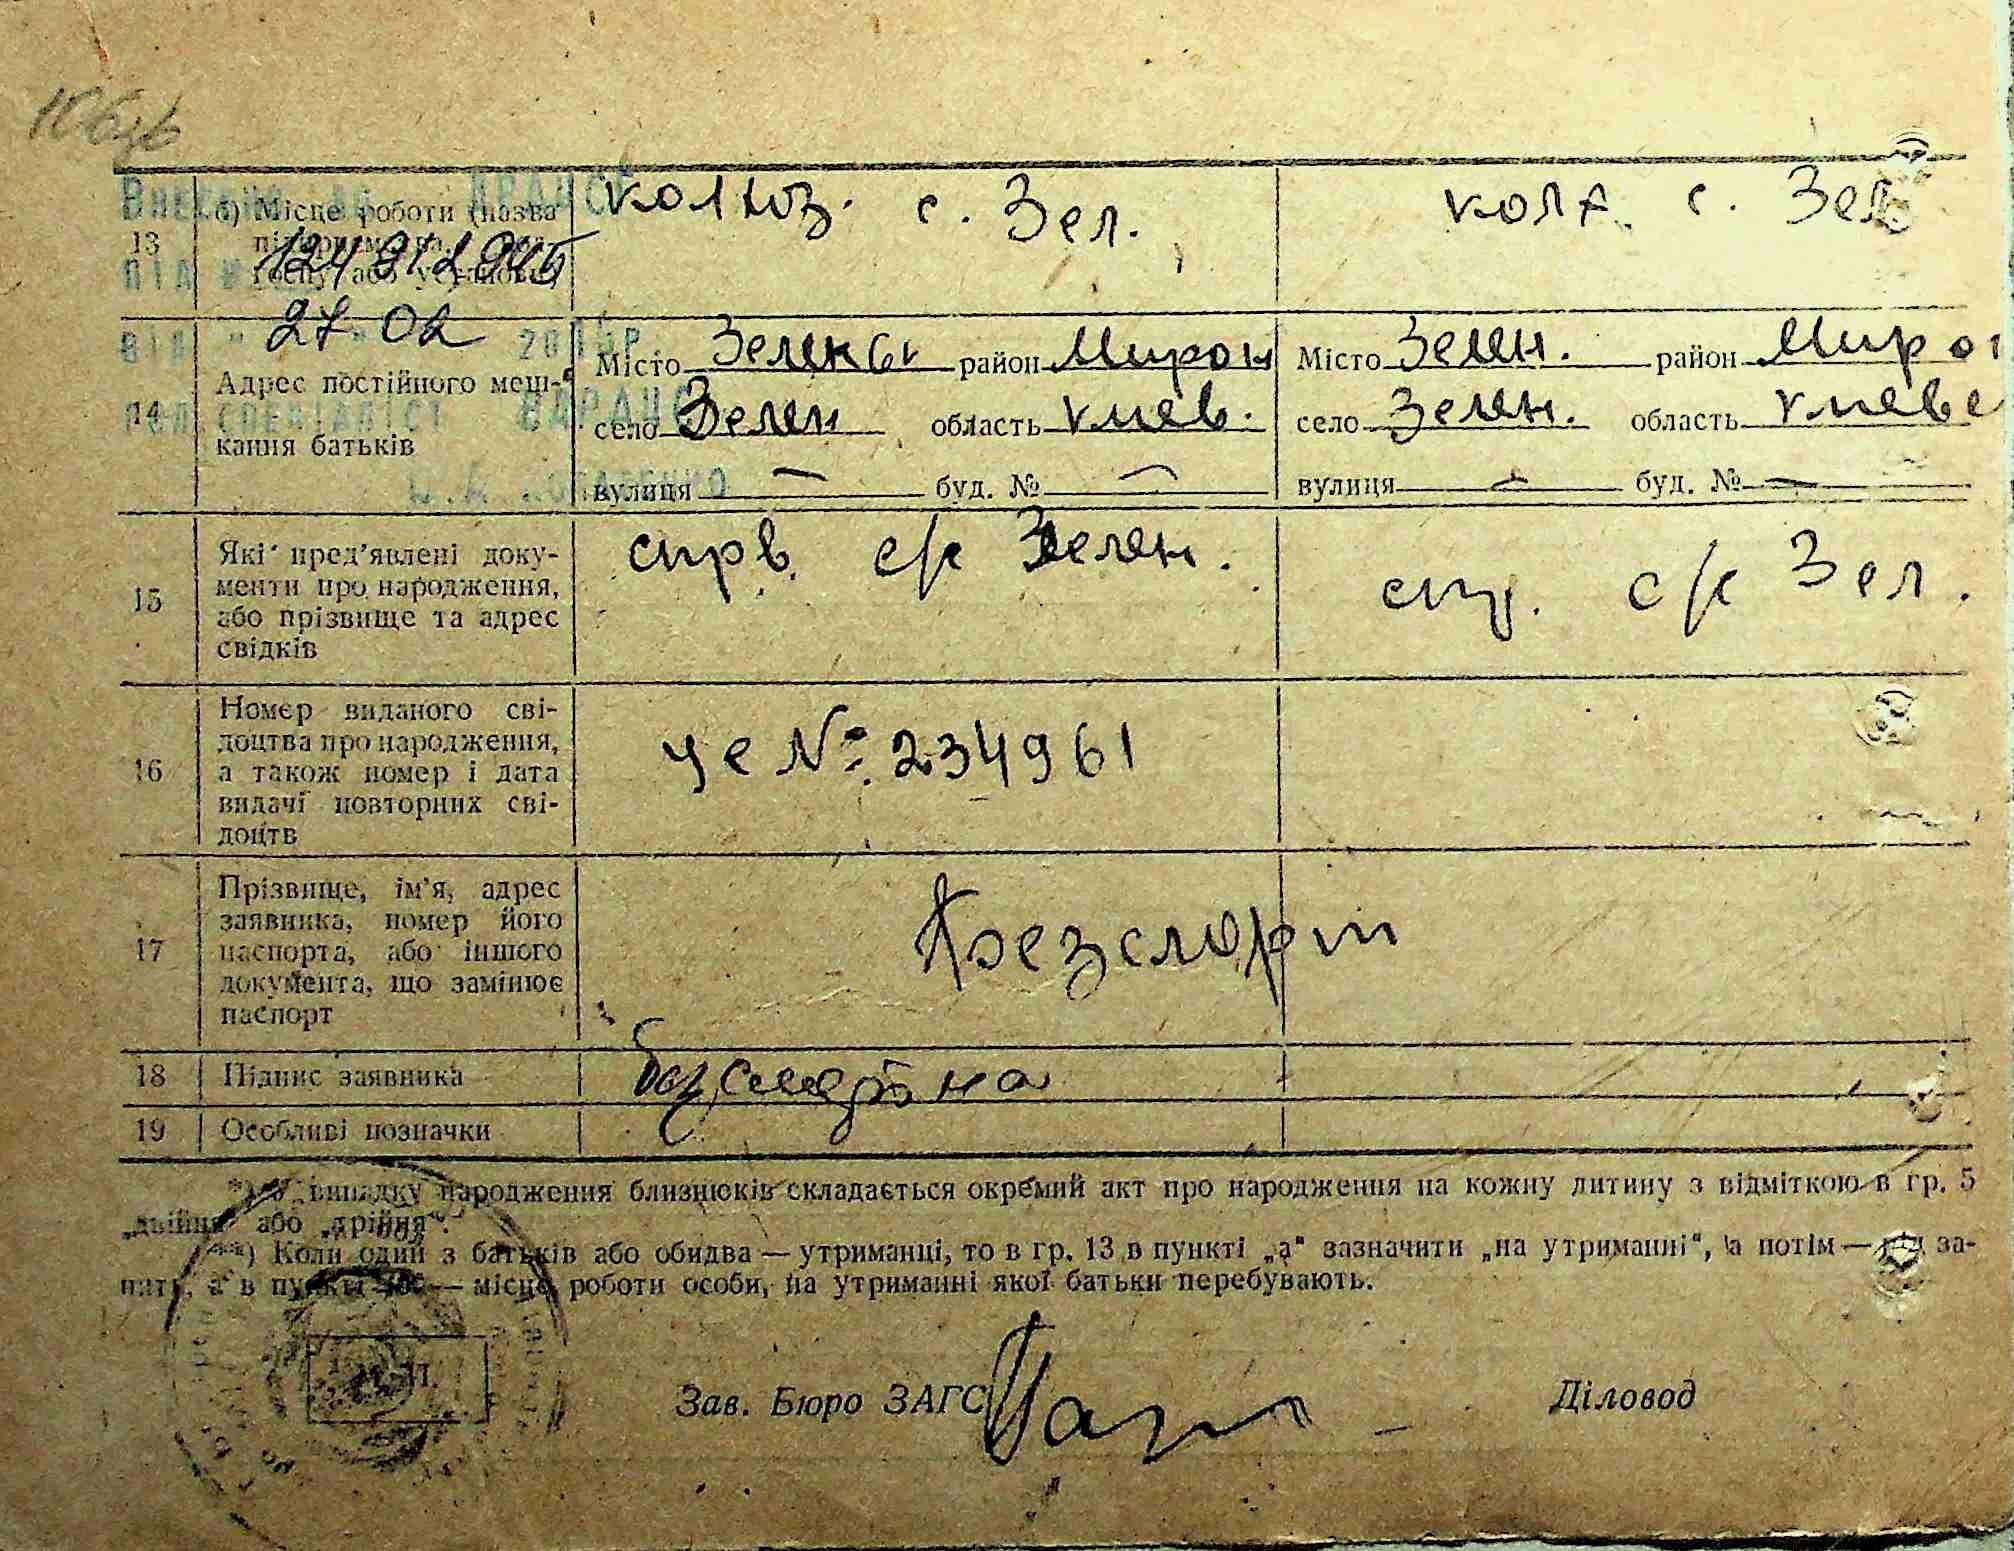 колгоз. с. Зел.
колг. с. Зел.
13
б) Місце роботи (назва
27 02
14
Адрес постійного меш-
кання батьків
Місто Зеленьки район Мирон
село Зелен область Києв.
вулиця — буд. № —
Місто Зелен. район Мирон
село Зелен. область Києве
вулиця — буд. № —
15
Які пред’явлені доку-
менти про народження,
або прізвище та адрес
свідків
спрв. с/к Зелен.
спр. с/к Зел.
16
Номер виданого сві-
доцтва про народження,
а також номер і дата
видачі повторних сві-
доцтв
уе №: 234961
17
Прізвище, ім’я, адрес
заявника, номер його
паспорта, або іншого
документа, що замінює
паспорт
18
Підпис заявника
19
Особливі позначки
*) У випадку народження близнюків складається окремий акт про народження на кожну дитину з відміткою в гр. 5
„двійня“ або „трійня“.
**) Коли один з батьків або обидва — утриманці, то в гр. 13 в пункті „а“ зазначити „на утриманні“, а потім — рід за-
— місце роботи особи, на утриманні якої батьки перебувають.
М. П.
Зав. Бюро ЗАГС
Діловод